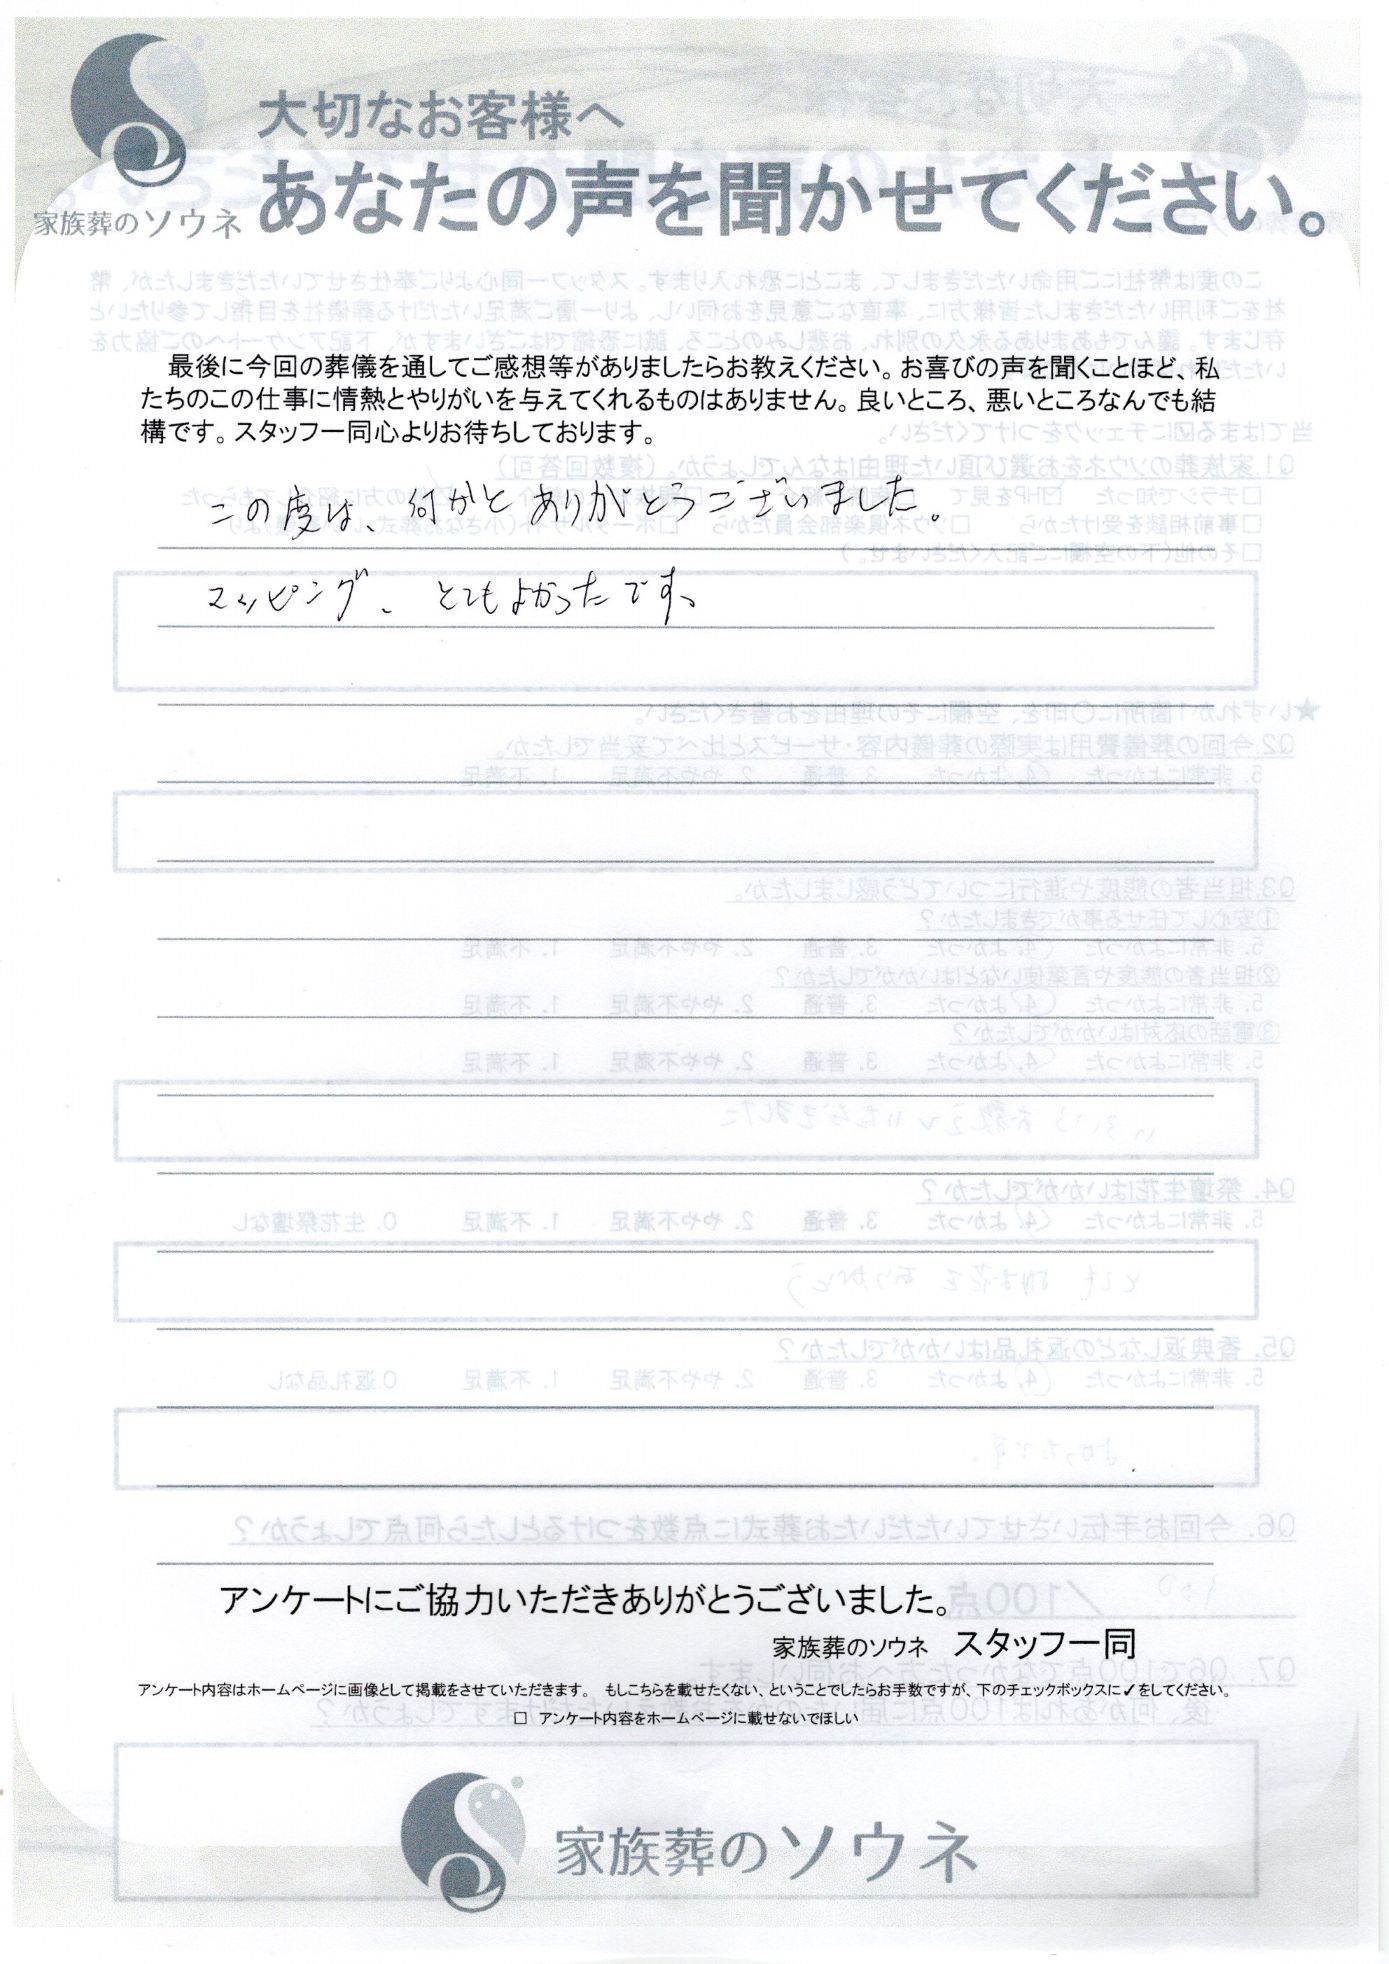 大切なお客様へ
あなたの声を聞かせてください。
家族葬のソウネ
最後に今回の葬儀を通してご感想等がありましたらお教えください。お喜びの声を聞くことほど、私
たちのこの仕事に情熱とやりがいを与えてくれるものはありません。良いところ、悪いところなんでも結
構です。スタッフ一同心よりお待ちしております。
この度は、何かとありがとうございました。
マッピング、とてもよかったです。
アンケートにご協力いただきありがとうございました。
家族葬のソウネ スタッフ一同
アンケート内容はホームページに画像として掲載をさせていただきます。 もしこちらを載せたくない、ということでしたらお手数ですが、下のチェックボックスに✓をしてください。
□ アンケート内容をホームページに載せないでほしい
家族葬のソウネ